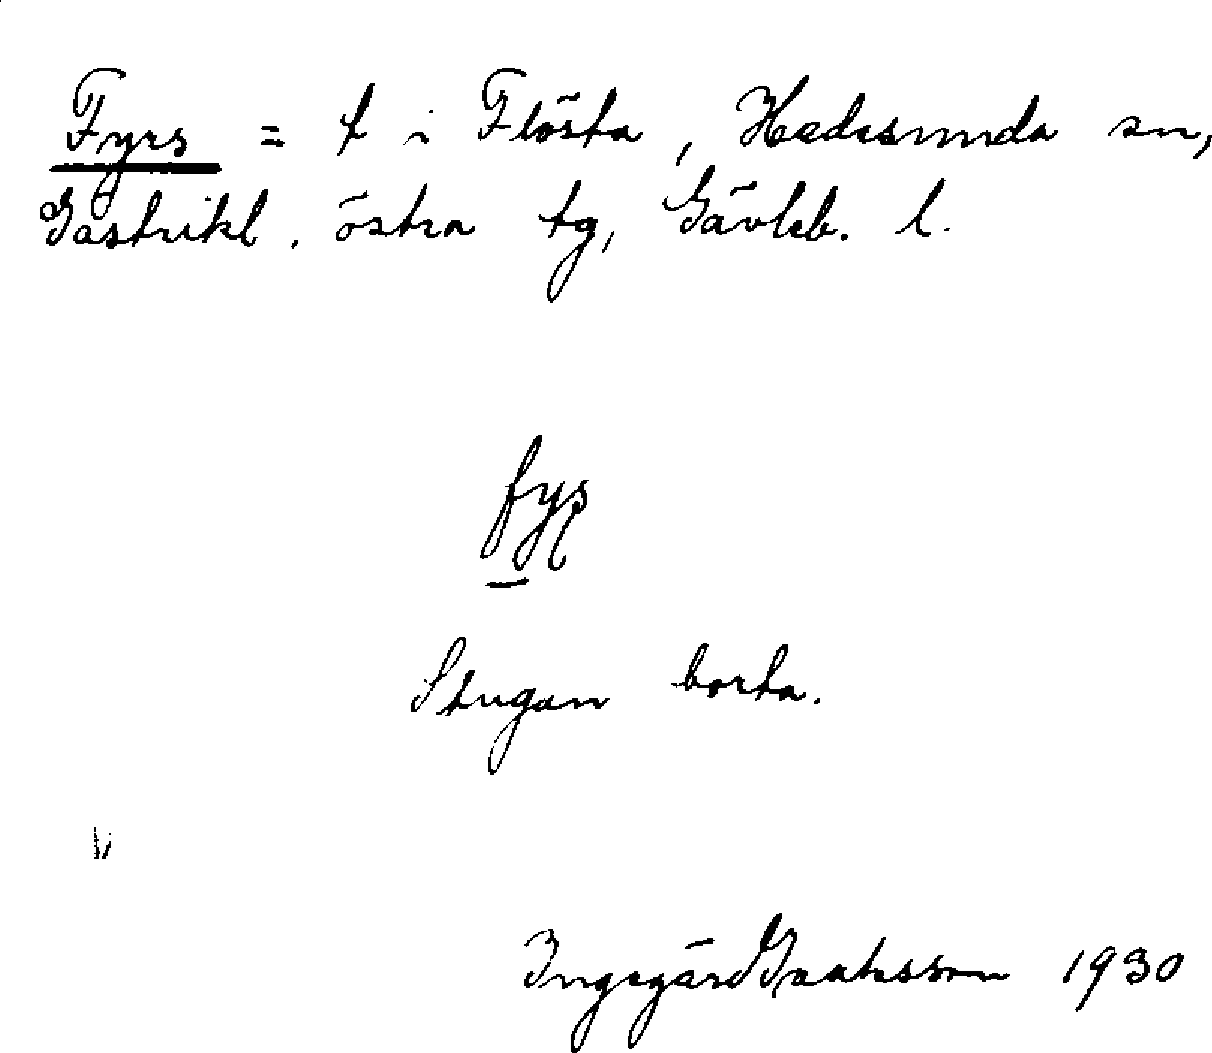 Fyrs = t i Flösta, Hedesunda sn,
Gästrikl. östra tg, Gävleb. l.
fyş
Stugan borta.
V
Ingegärd Isaksson 1930